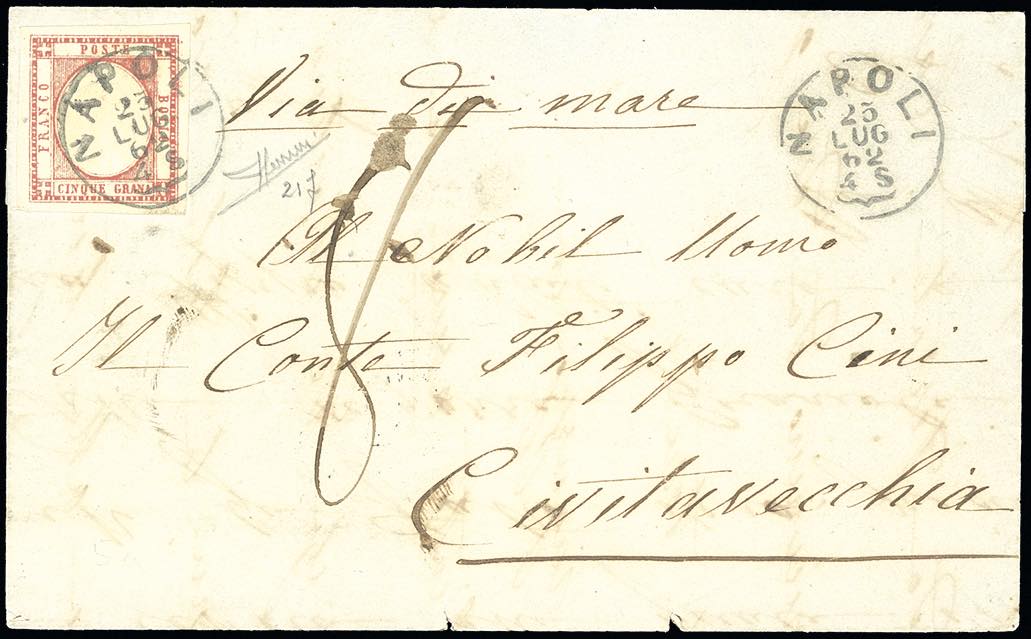 POSTE
FRANCO
BOLLO
CINQUE GRANA
NAPOLI
25
LUG
62
4 S
Via di mare
NAPOLI
25
LUG
62
4 S
217
8
Al Nobil Uomo
Il Conte Filippo Cini
Civitavecchia